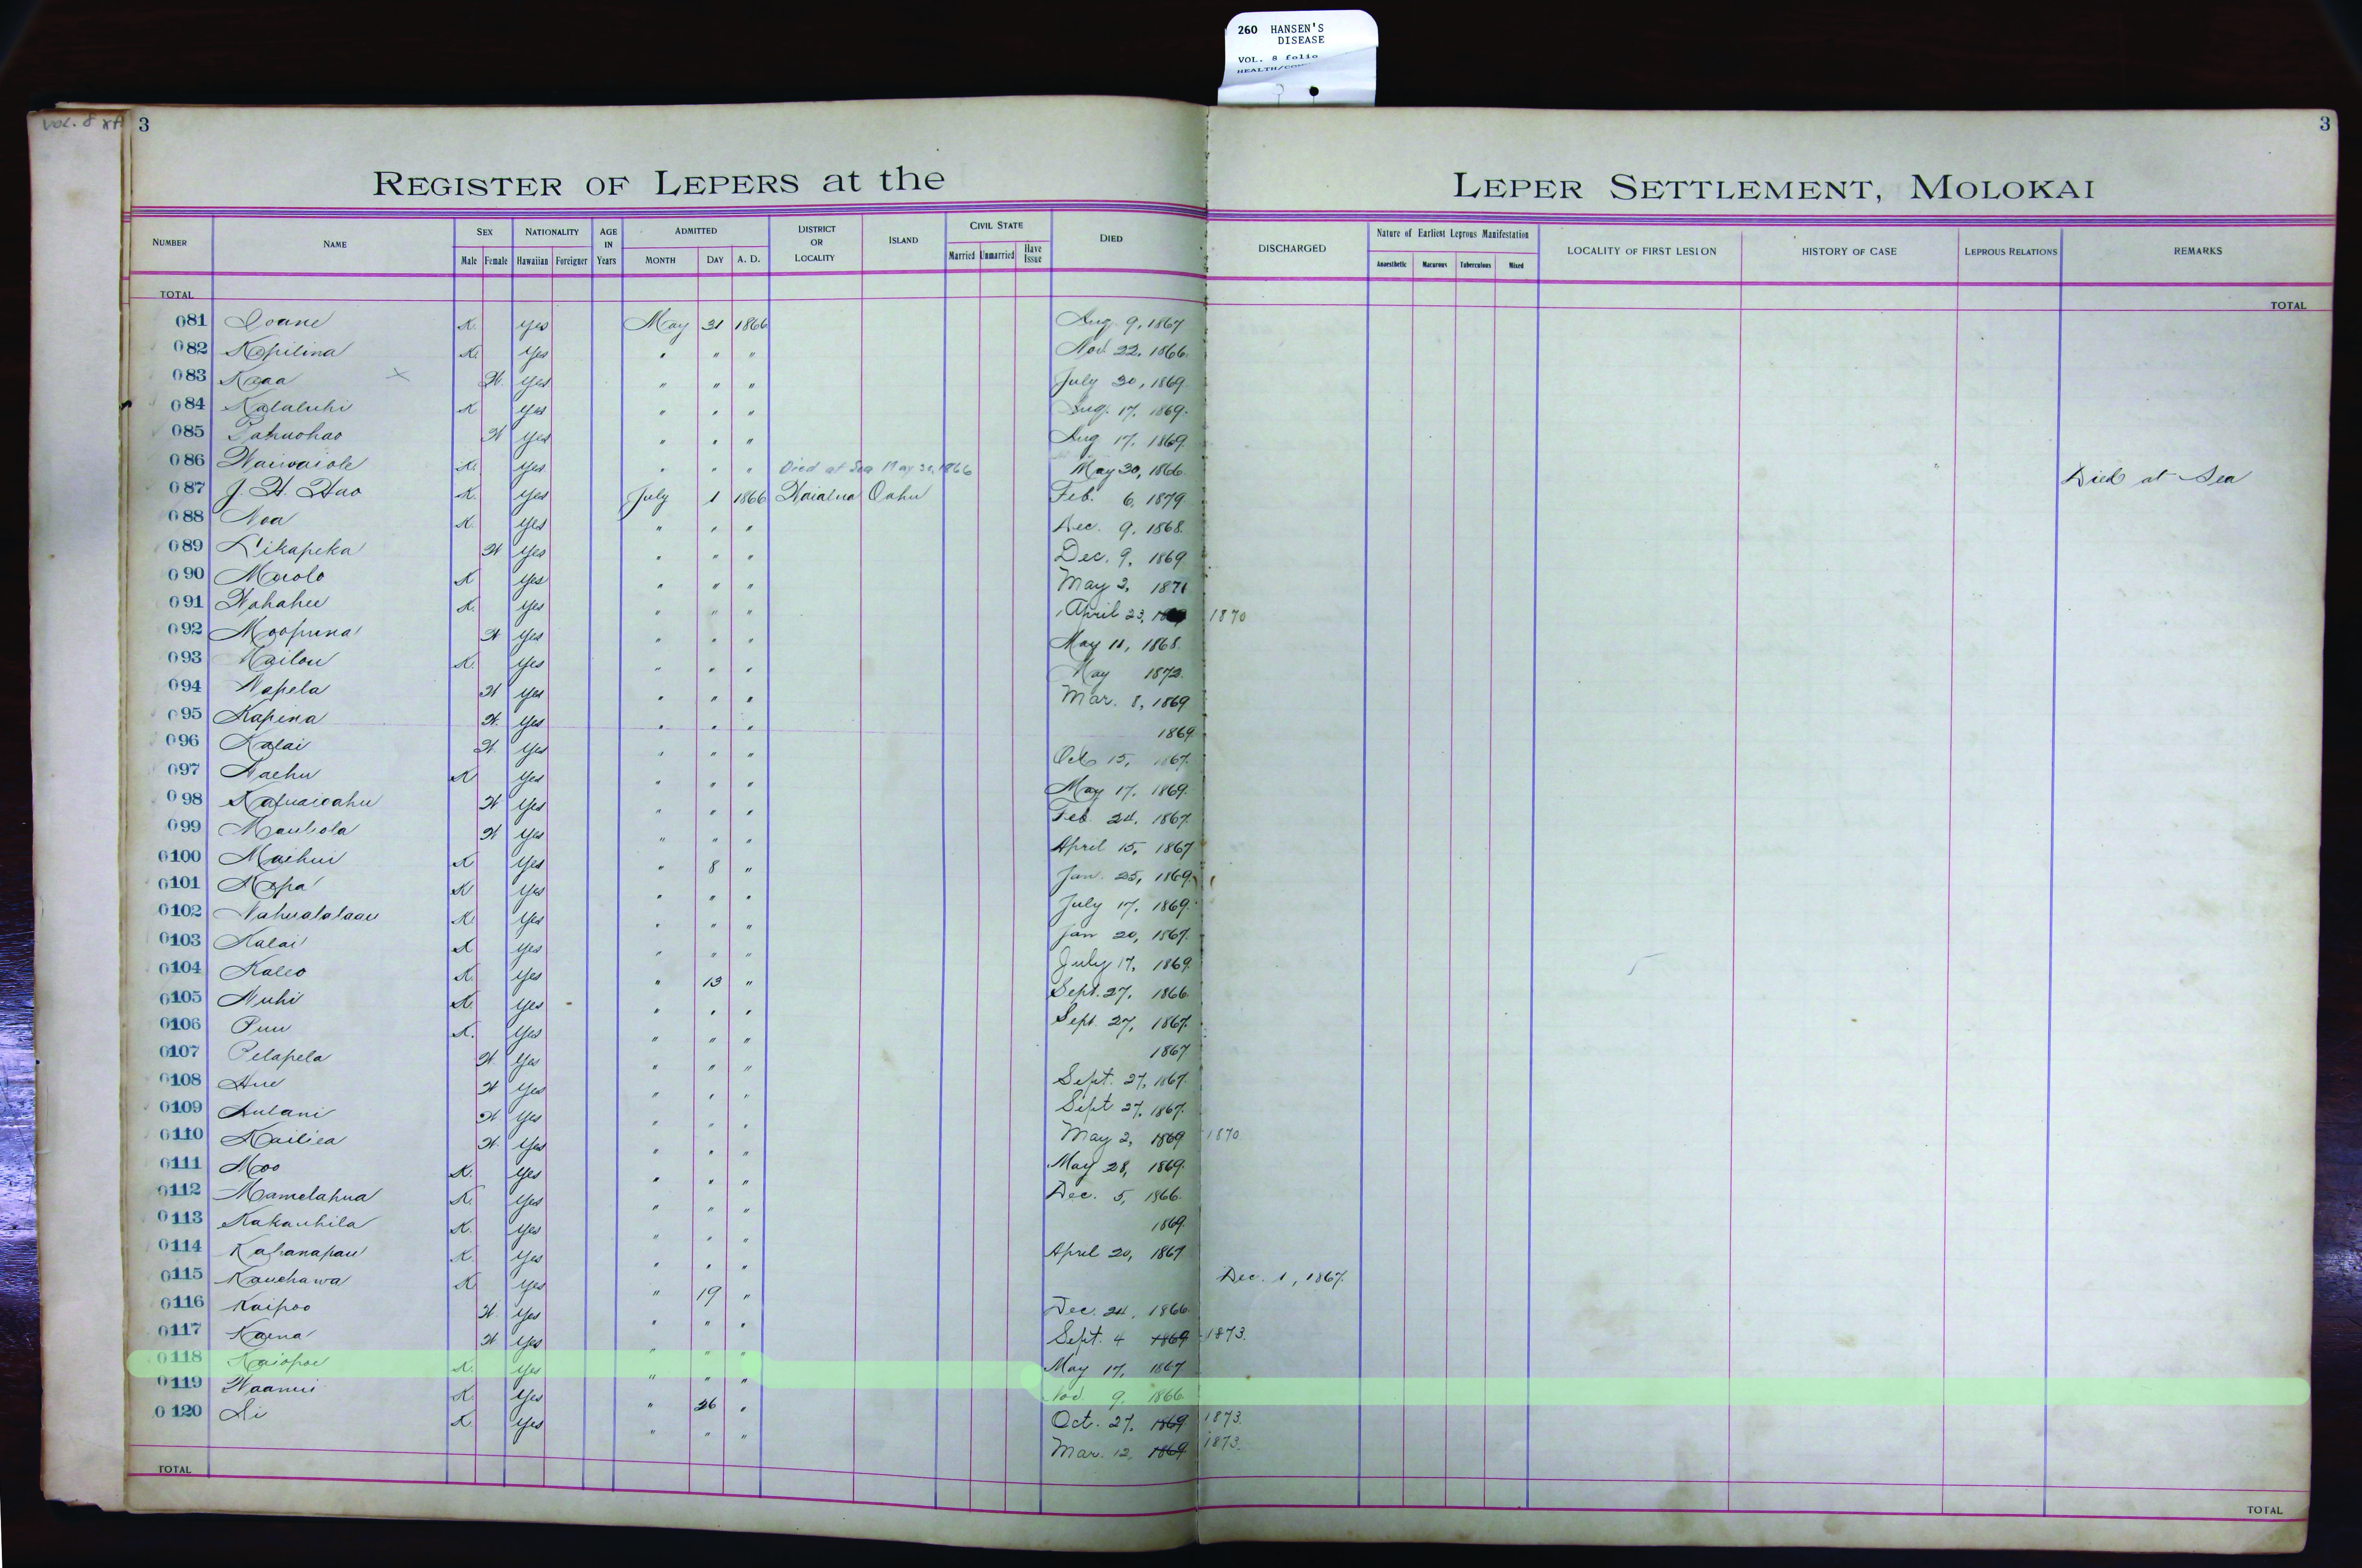 260 HANSEN'S
DISEASE
VOL. 8 folio
VOL. 8
3
3
REGISTER OF LEPERS at the LEPER SETTLEMENT, MOLOKAI
NUMBER NAME SEX Male Female NATIONALITY Hawaiian Foreigner AGE IN Years ADMITTED MONTH DAY A. D. DISTRICT OR LOCALITY ISLAND CIVIL STATE Married Unmarried Have Issue DIED DISCHARGED Nature of Earliest Leprous Manifestation Anaesthetic Macurous Tuberculous Mixed LOCALITY OF FIRST LESION HISTORY OF CASE LEPROUS RELATIONS REMARKS
TOTAL TOTAL
081 Ioane K. Yes May 31 1866 Aug. 9, 1867
082 Kapilina K. Yes " " " Nov. 22, 1866.
083 Kaaa x W. Yes " " " July 30, 1869.
084 Kalaluhi K Yes " " " Aug. 17, 1869.
085 W Yes " " " Aug 17, 1869.
086 Waiwaiole K. Yes " " " Died at Sea May 30, 1866 May 30, 1866. Died at Sea
087 J. H. Hao K. Yes July 1 1866 Waialua Oahu Feb. 6, 1879
088 Noa K. Yes " " " Dec. 9, 1868.
089 Likapeka W Yes " " " Dec. 9, 1869
090 Maolo K Yes " " " May 2, 1871
091 Wahahee K. Yes " " " April 23, 1870
092 Moopuna W Yes " " " May 11, 1868.
093 Kailou K. Yes " " " May 1872.
094 Napela W Yes " " " Mar. 8, 1869
095 Kapena W. Yes " " " 1869.
096 Kalai W Yes " " " Oct 15, 1867.
097 Naehu K Yes " " " May 17, 1869.
098 W Yes " " " Feb. 24, 1867.
099 Maulola W Yes " " " April 15, 1867
0100 Maihui K Yes " 8 " Jan. 25, 1869.
0101 Napa K Yes " " " July 17, 1869.
0102 Nahualalaau K. Yes " " " Jan 20, 1867.
0103 Kalai K Yes " " " July 17, 1869.
0104 Kaleo K. Yes " 13 " Sept. 27, 1866.
0105 Nuhi K. Yes " " " Sept. 27, 1867.
0106 Puu K. Yes " " " 1867
0107 Pelapela W Yes " " " Sept. 27, 1867.
0108 Hue W Yes " " " Sept 27, 1867.
0109 Aulani W. Yes " " " May 2, 1869 1870.
0110 Kailiea W. Yes " " " May 28, 1869.
0111 Moo K. Yes " " " Dec. 5, 1866.
0112 Mamelahua K. Yes " " " 1869.
0113 Kakauhila K. Yes " " " April 20, 1867
0114 Kahanapau K. Yes " " " Dec. 1, 1867.
0115 Kauehawa K. Yes " 19 " Dec. 24, 1866.
0116 Kaipoo W. Yes " " " Sept. 4 1869 1873.
0117 Kaena W Yes " " " May 17, 1867
0118 Kaiopoe K. Yes " " " Nov. 9, 1866.
0119 Waamui K. Yes " 26 " Oct. 27, 1869 1873.
0120 Ai K. Yes " " " Mar. 12, 1869 1873.
TOTAL TOTAL